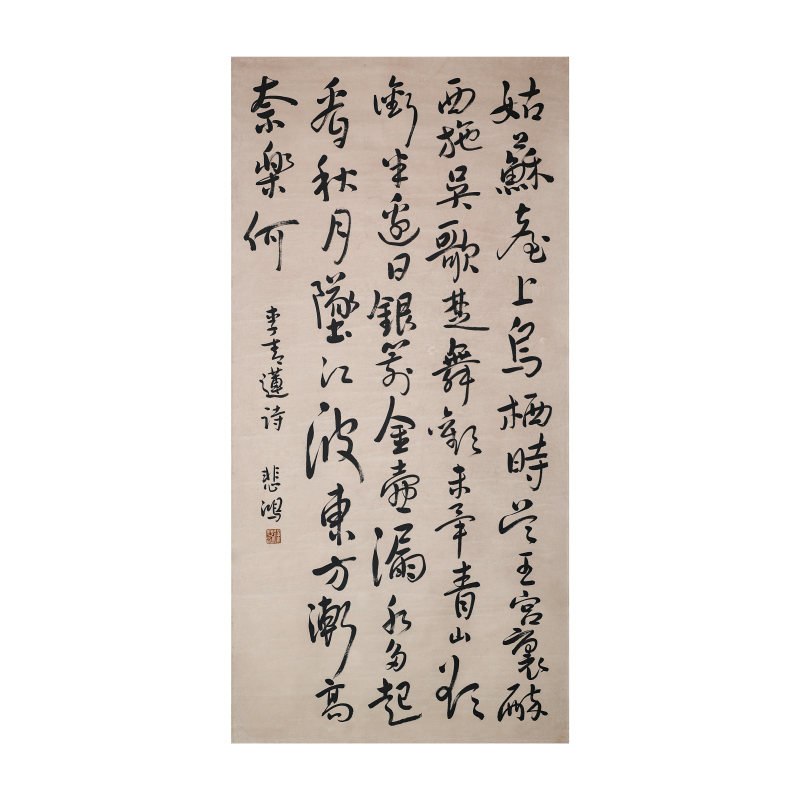 姑蘇臺上烏栖時吴王宮裏醉
西施吳歌楚舞歡未畢青山欲
銜半邊日銀箭金壺漏水多起
看秋月墜江波東方漸高
奈樂何
李青蓮诗
悲鴻